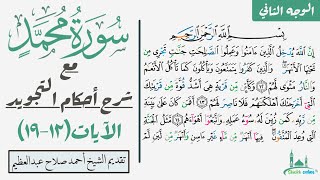 الوجه الثاني
سُورَةُ مُحَمَّدٍ
مع
شرح أحكام التجويد
الآيات (١٢-١٩)
تقديم الشيخ أحمد صلاح عبدالعظيم
بِسْمِ اللَّهِ الرَّحْمَٰنِ الرَّحِيمِ
إِنَّ اللَّهَ يُدْخِلُ الَّذِينَ ءَامَنُوا وَعَمِلُوا الصَّٰلِحَٰتِ جَنَّٰتٍ تَجْرِي مِن
تَحْتِهَا الْأَنْهَٰرُ وَالَّذِينَ كَفَرُوا يَتَمَتَّعُونَ وَيَأْكُلُونَ كَمَا تَأْكُلُ الْأَنْعَٰمُ
وَالنَّارُ مَثْوًى لَّهُمْ ١٢ وَكَأَيِّن مِّن قَرْيَةٍ هِيَ أَشَدُّ قُوَّةً مِّن قَرْيَتِكَ
الَّتِي أَخْرَجَتْكَ أَهْلَكْنَٰهُمْ فَلَا نَاصِرَ لَهُمْ ١٣ أَفَمَن كَانَ عَلَىٰ بَيِّنَةٍ مِّن
رَّبِّهِ كَمَن زُيِّنَ لَهُ سُوءُ عَمَلِهِ وَاتَّبَعُوا أَهْوَاءَهُم ١٤ مَّثَلُ الْجَنَّةِ
الَّتِي وُعِدَ الْمُتَّقُونَ فِيهَا أَنْهَٰرٌ مِّن مَّاءٍ غَيْرِ ءَاسِنٍ وَأَنْهَٰرٌ مِّن لَّبَنٍ لَّمْ